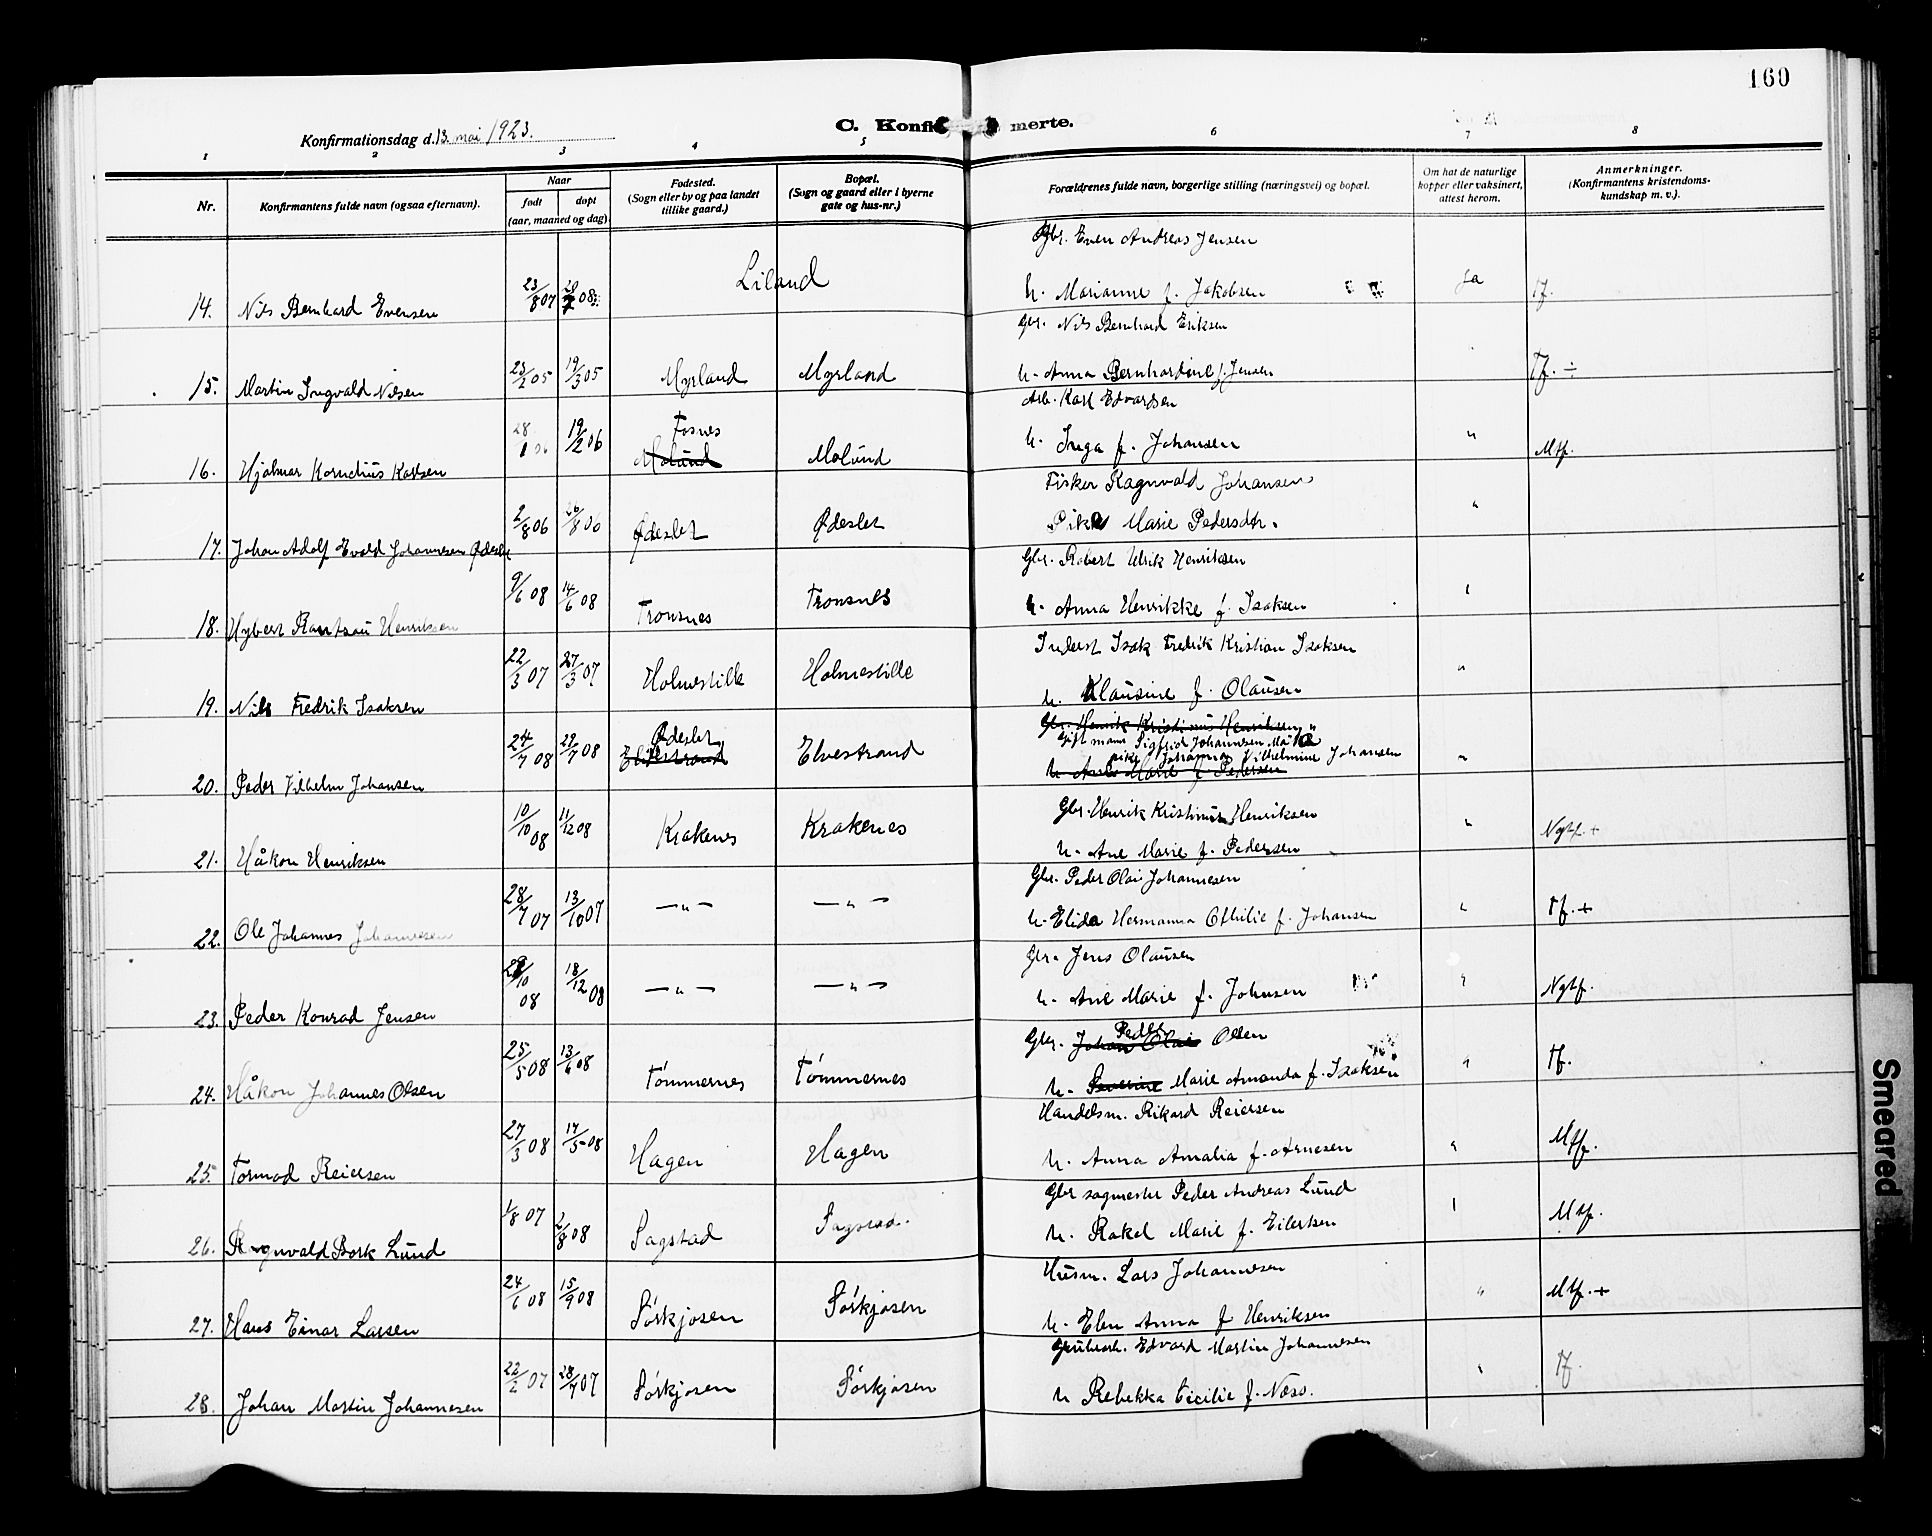 160
Konfirmationsdag d. 13. mai 1923.
C. Konfi merte.
1 2 3 4 5 6 7 8
Nr.
Konfirmantens fulde navn (ogsaa efternavn).
Naar
født døpt
(aar, maaned og dag)
Fødested.
(Sogn eller by og paa landet
tillike gaard.)
Bopæl.
(Sogn og gaard eller i byerne
gate og hus-nr.)
Forældrenes fulde navn, borgerlige stilling (næringsvei) og bopæl.
Om hat de naturlige
kopper eller vaksinert,
attest herom.
Anmerkninger.
(Konfirmantens kristendoms-
kundskap m. v.).
Gbr. Even Andreas Jensen
14. Nils Bernhard Evensen 23/8 07 Liland h. Marianne f. Jakobsen Ja Tf.
Gbr. Nils Bernhard Eriksen
15. Martin Ingvald Nilsen 23/2 05 19/3 05 Myrland Myrland h. Anna Bernhardine f. Jensen " Tf. ÷
Arb. Karl Edvardsen
Fosnes
16. Hjalmar Kornelius Karlsen 28/1 06 19/2 06 Molund Molund h. Inga f. Johansen " Mtf.
Fisker Ragnvald Johansen
17. Johan Adolf Evald Johannesen Ødeslet 2/8 06 26/8 06 Ødeslet Ødeslet Pike Marie Pedersdtr. "
Gbr. Robert Ulrik Henriksen
18. Hybert Rantzau Henriksen 9/6 08 14/6 08 Tronsnes Tronsnes h. Anna Henrikke f. Isaksen "
Inderst Isak Fredrik Kristian Isaksen
19. Nils Fredrik Isaksen 22/3 07 27/3 07 Holmestille Holmestille h. Klausine f. Olausen "
Gbr. Henrik Kristinus Henriksen
Gift mann Sigfrid Johannesen
Ødeslet
pike Johanna Vilhelmine Johansen
20. Peder Vilhelm Johansen 24/7 08 29/7 08 Elvestrand Elvestrand h. Ane Marie f. Pedersen "
Gbr. Henrik Kristinus Henriksen
21. Håkon Henriksen 10/10 08 11/12 08 Krakenes Krakenes h. Ane Marie f. Pedersen " Ngtf. +
Gbr. Peder Olai Johannesen
22. Ole Johannes Johannesen 28/7 07 13/10 07 —"— —"— h. Elida Hermanna Othilie f. Johansen " Tf. +
Gbr. Jens Olausen
23. Peder Konrad Jensen 29/10 08 18/12 08 —"— —"— h. Ane Marie f. Johnsen " Ngtf.
Peder
Gbr. Johan Olai Olsen
24. Håkon Johannes Olsen 25/5 08 13/6 08 Tømmernes Tømmernes h. Severine Marie Amanda f. Isaksen " Tf.
Handelsm. Rikard Reiersen
25. Tormod Reiersen 27/3 08 17/5 08 Hagen Hagen h. Anna Amalia f. Arnesen " Mtf.
Gbr sagmester Peder Andreas Lund
26. Ragnvald Bork Lund 1/8 07 2/8 08 Sagstad Sagstad. h. Rakel Marie f. Eilertsen " Mtf.
Husm. Lars Johannesen
27. Hans Einar Larsen 24/6 08 15/9 08 Sørkjosen Sørkjosen h. Elen Anna f Henriksen " Mtf. +
Grubearb. Edvard Martin Johannesen
28. Johan Martin Johannesen 22/2 07 28/7 07 Sørkjosen Sørkjosen h Rebekka Cicilie f. Næss. " Tf.
Smeared